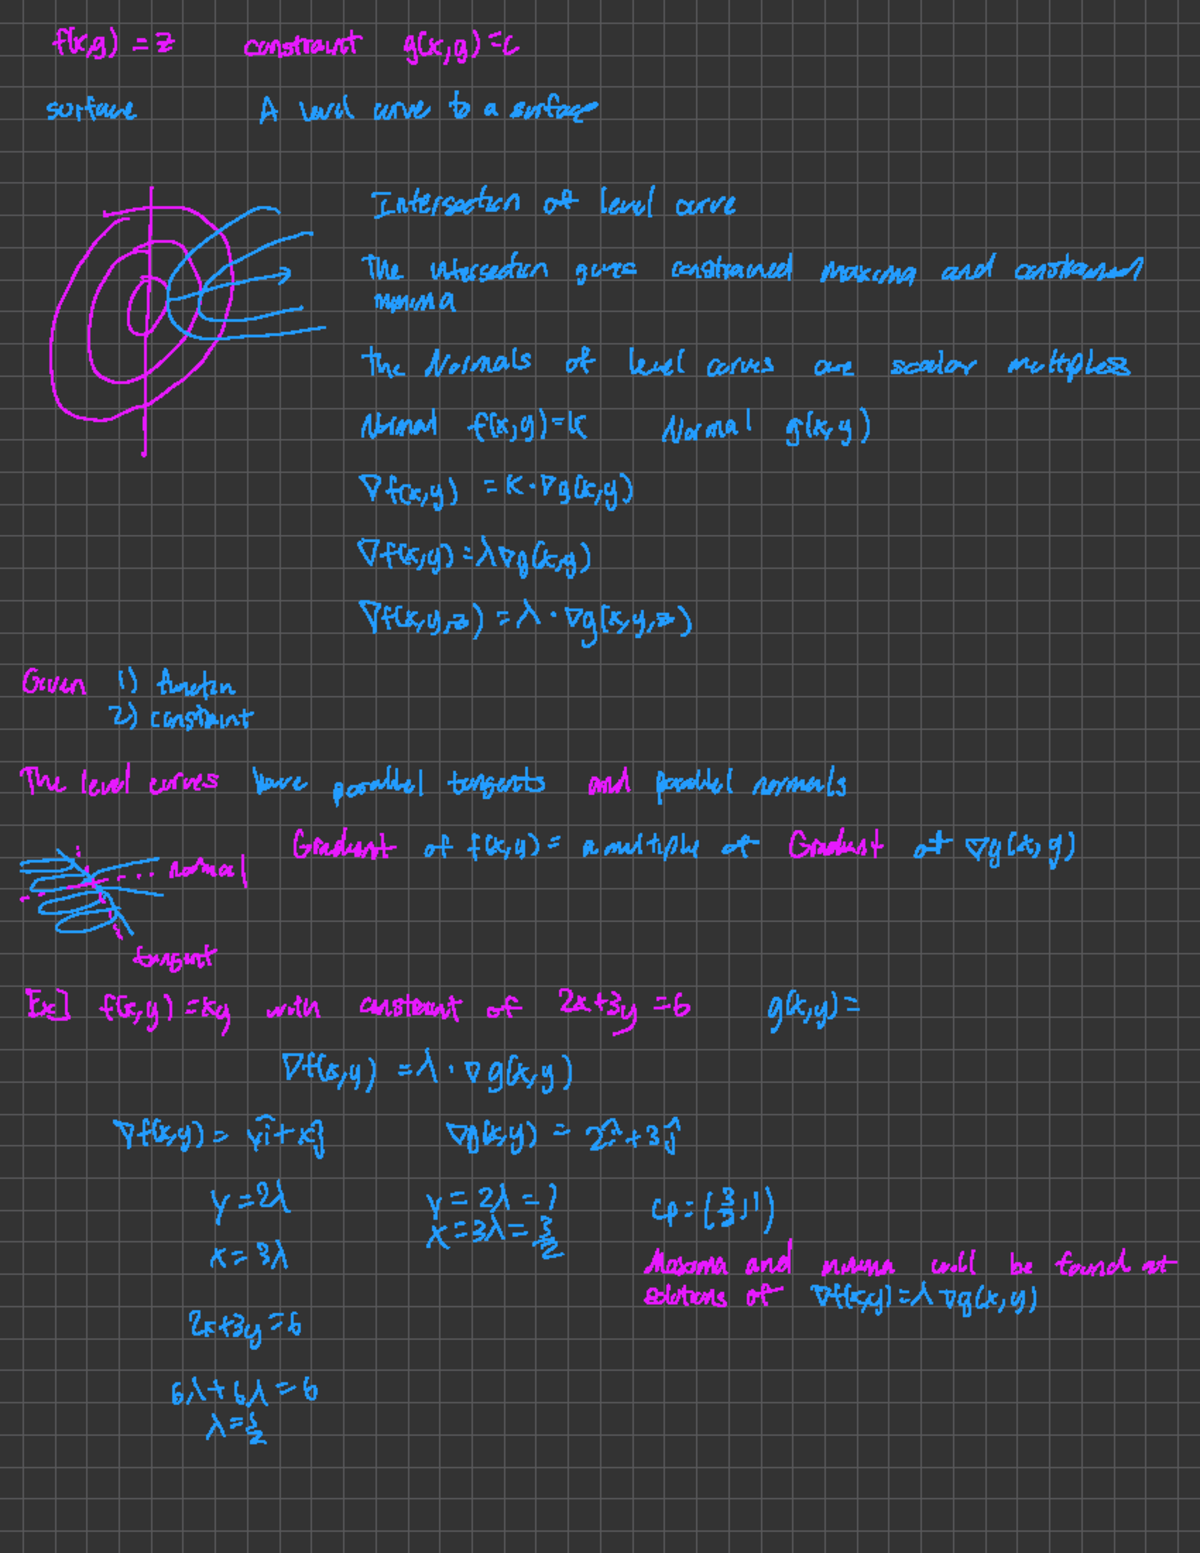 f(x,y) = z constraint g(x,y) = c
surface A level curve to a surface
Intersection of level curve
The intersection gives constrained maxima and constrained
minima
the Normals of level curves are scalar multiples
Normal f(x,y)=K Normal g(x,y)
∇f(x,y) = K·∇g(x,y)
∇f(x,y) = λ∇g(x,y)
∇f(x,y,z) = λ·∇g(x,y,z)
Given 1) function
2) constraint
The level curves have parallel tangents and parallel normals
Gradient of f(x,y) = a multiple of Gradient of ∇g(x,y)
normal
tangent
Ex] f(x,y) = xy with constraint of 2x+3y = 6 g(x,y) =
∇f(x,y) = λ·∇g(x,y)
∇f(x,y) = yî + xĵ ∇g(x,y) = 2î + 3ĵ
y = 2λ y = 2λ = 1 cp = (3/2, 1)
x = 3λ x = 3λ = 3/2
Maxima and minima will be found at
solutions of ∇f(x,y) = λ∇g(x,y)
2x+3y = 6
6λ + 6λ = 6
λ = 1/2